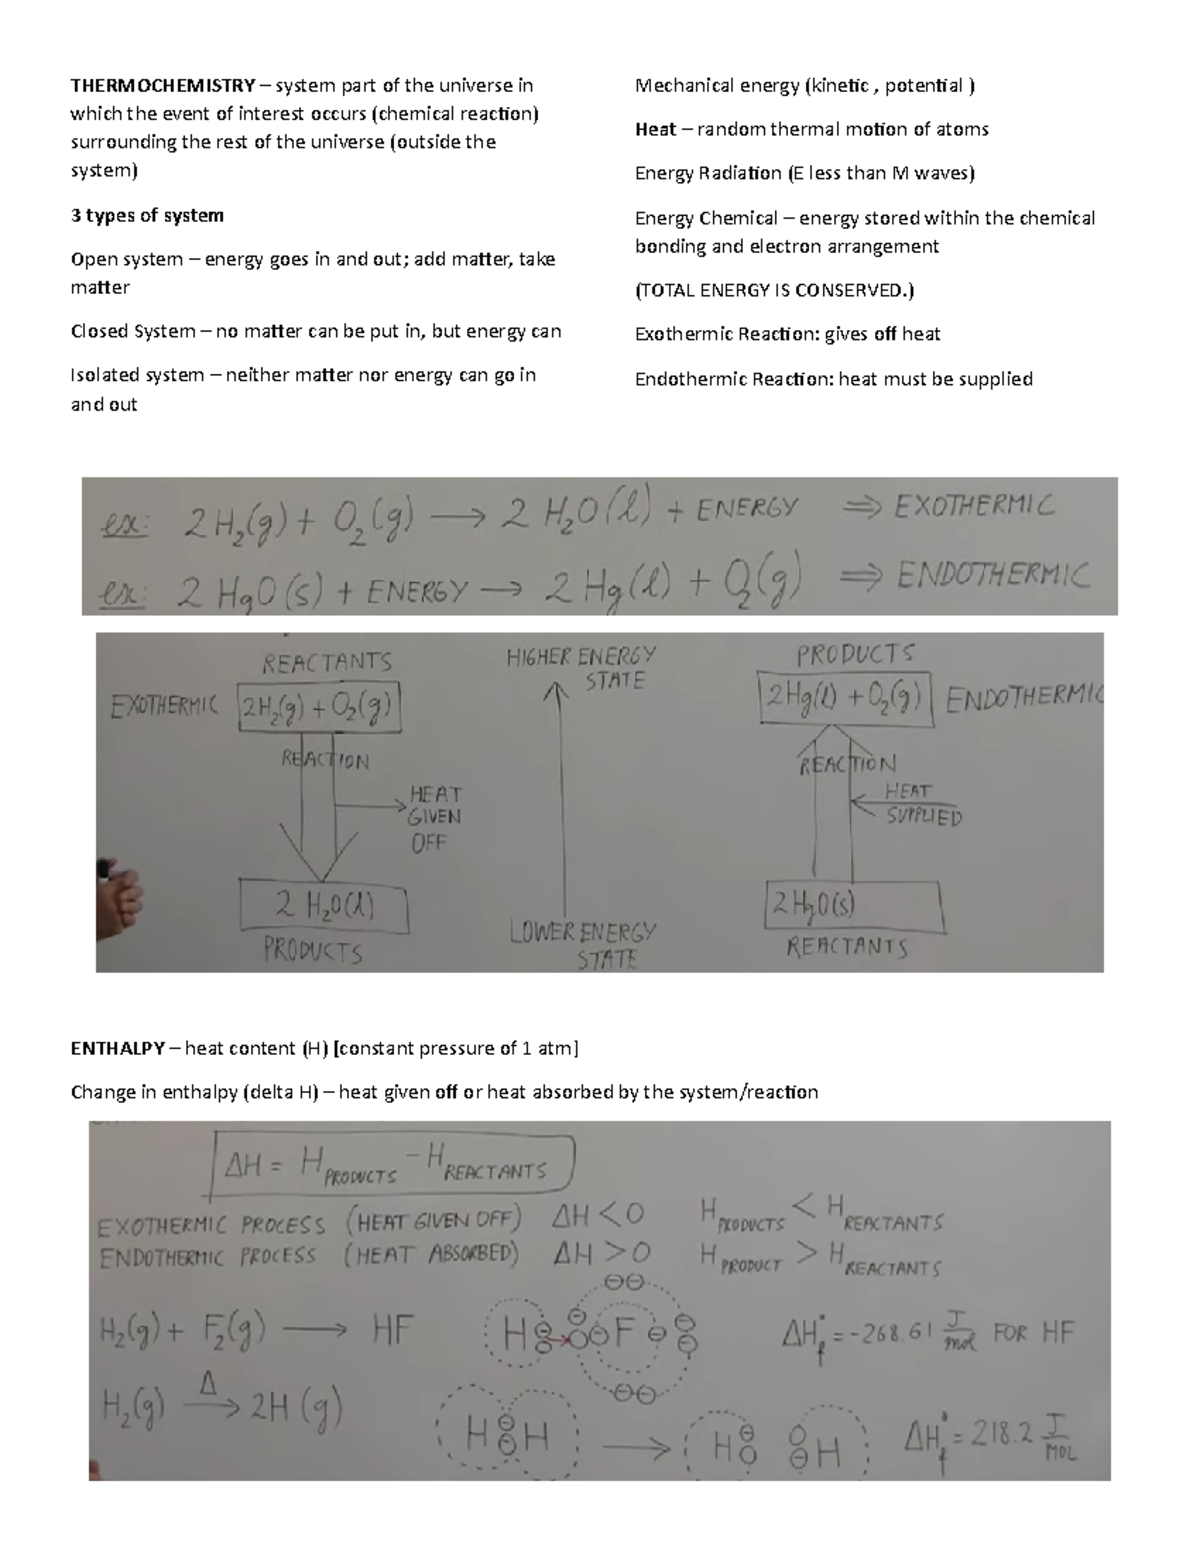 THERMOCHEMISTRY – system part of the universe in
which the event of interest occurs (chemical reaction)
surrounding the rest of the universe (outside the
system)
3 types of system
Open system – energy goes in and out; add matter, take
matter
Closed System – no matter can be put in, but energy can
Isolated system – neither matter nor energy can go in
and out
Mechanical energy (kinetic , potential )
Heat – random thermal motion of atoms
Energy Radiation (E less than M waves)
Energy Chemical – energy stored within the chemical
bonding and electron arrangement
(TOTAL ENERGY IS CONSERVED.)
Exothermic Reaction: gives off heat
Endothermic Reaction: heat must be supplied
ex: 2H₂(g) + O₂(g) → 2 H₂O(l) + ENERGY ⇒ EXOTHERMIC
ex: 2 HgO(s) + ENERGY → 2 Hg(l) + O₂(g) ⇒ ENDOTHERMIC
REACTANTS
EXOTHERMIC 2H₂(g) + O₂(g)
REACTION
HEAT
GIVEN
OFF
2 H₂O(l)
PRODUCTS
HIGHER ENERGY
STATE
LOWER ENERGY
STATE
PRODUCTS
2Hg(l) + O₂(g) ENDOTHERMIC
REACTION
HEAT
SUPPLIED
2H₂O(s)
REACTANTS
ENTHALPY – heat content (H) [constant pressure of 1 atm]
Change in enthalpy (delta H) – heat given off or heat absorbed by the system/reaction
ΔH = H PRODUCTS − H REACTANTS
EXOTHERMIC PROCESS (HEAT GIVEN OFF) ΔH < 0 H PRODUCTS < H REACTANTS
ENDOTHERMIC PROCESS (HEAT ABSORBED) ΔH > 0 H PRODUCT > H REACTANTS
H₂(g) + F₂(g) → HF H F ΔH°f = -268.61 J/mol FOR HF
H₂(g) Δ→ 2H (g) H H → H H ΔH°f = 218.2 J/MOL